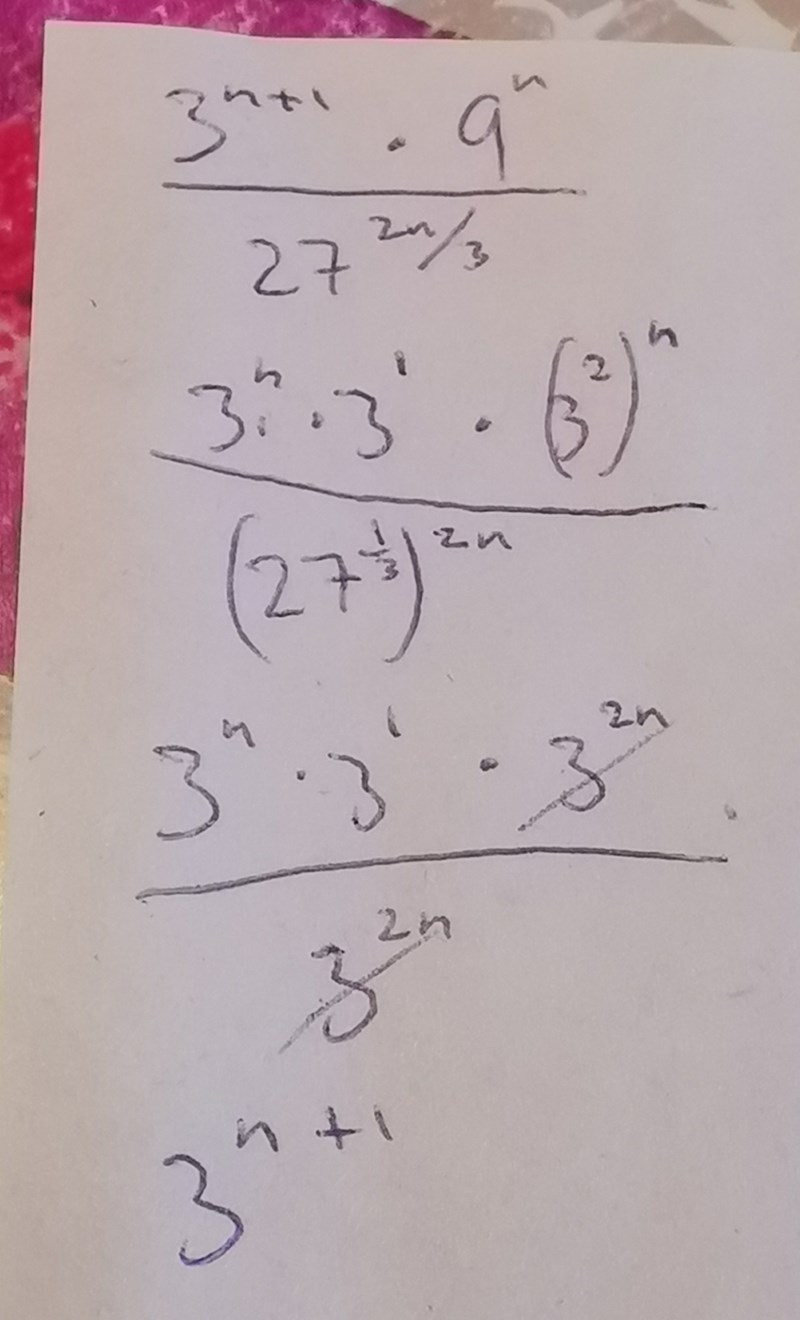 3^{n+1} · 9^n
27^{2n/3}
3^n · 3^1 · (3^2)^n
(27^{1/3})^{2n}
3^n · 3^1 · 3^{2n}
3^{2n}
3^{n+1}